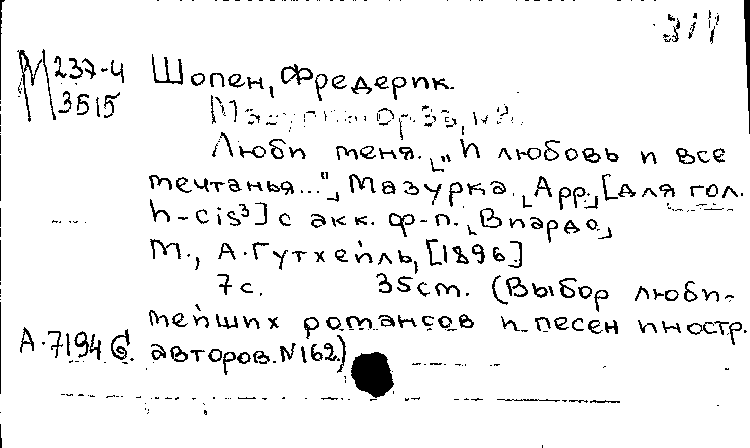 311
М 237-4
3515
Шопен, Фредерик.
Мазурки. Op. 33, №
Люби меня. ⌊„И любовь и все
мечтанья..."⌋ Мазурка. ⌊Арр.⌋ [для гол.
h-cis³] с акк. ф-п. ⌊Виардо⌋
М., А. Гутхейль, [1896]
7 с. 35 см. (Выбор люби-
мейших романсов и песен иностр.
авторов. N162)
А.7194 б.